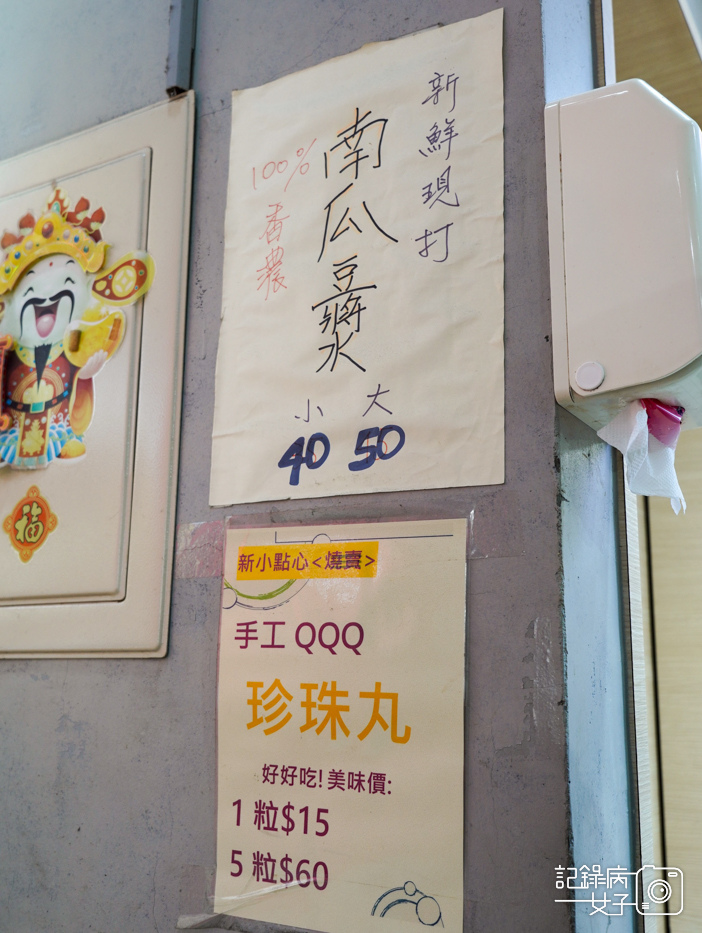 新鮮現打
南瓜豆漿水
100%
香濃
小 大
40 50
福
新小點心<燒賣>
手工 QQQ
珍珠丸
好好吃! 美味價:
1 粒$15
5 粒$60
記錄病
女子